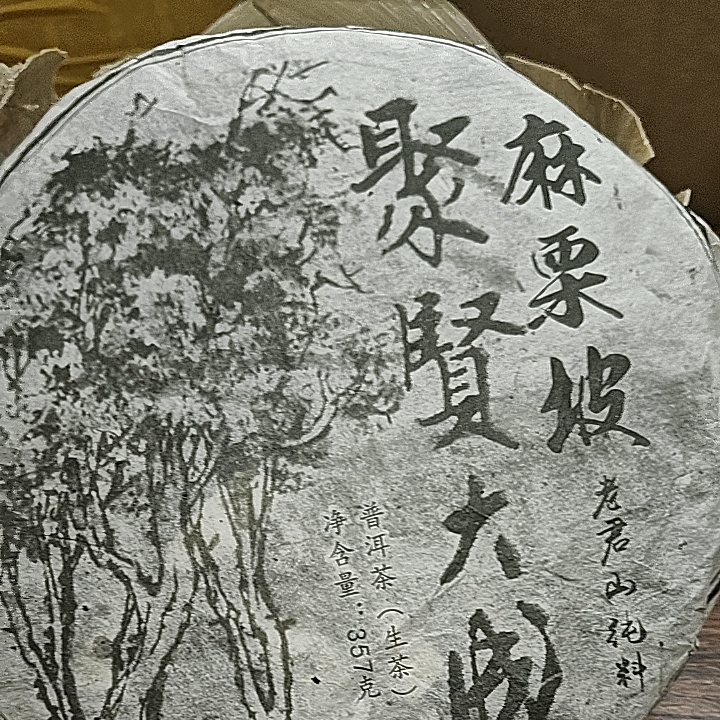 麻栗坡
老君山纯料
聚賢大
普洱茶（生茶）
净含量：357克